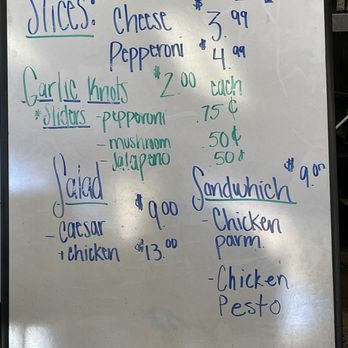 Slices: Cheese $3.99
Pepperoni $4.99
Garlic Knots $2.00 each
*Sliders - pepperoni .75¢
- mushroom .50¢
- Jalapeno 50¢
Salad $9.00
- Caesar
+ chicken $13.00
Sandwhich $9.00
- Chicken parm.
- Chicken Pesto